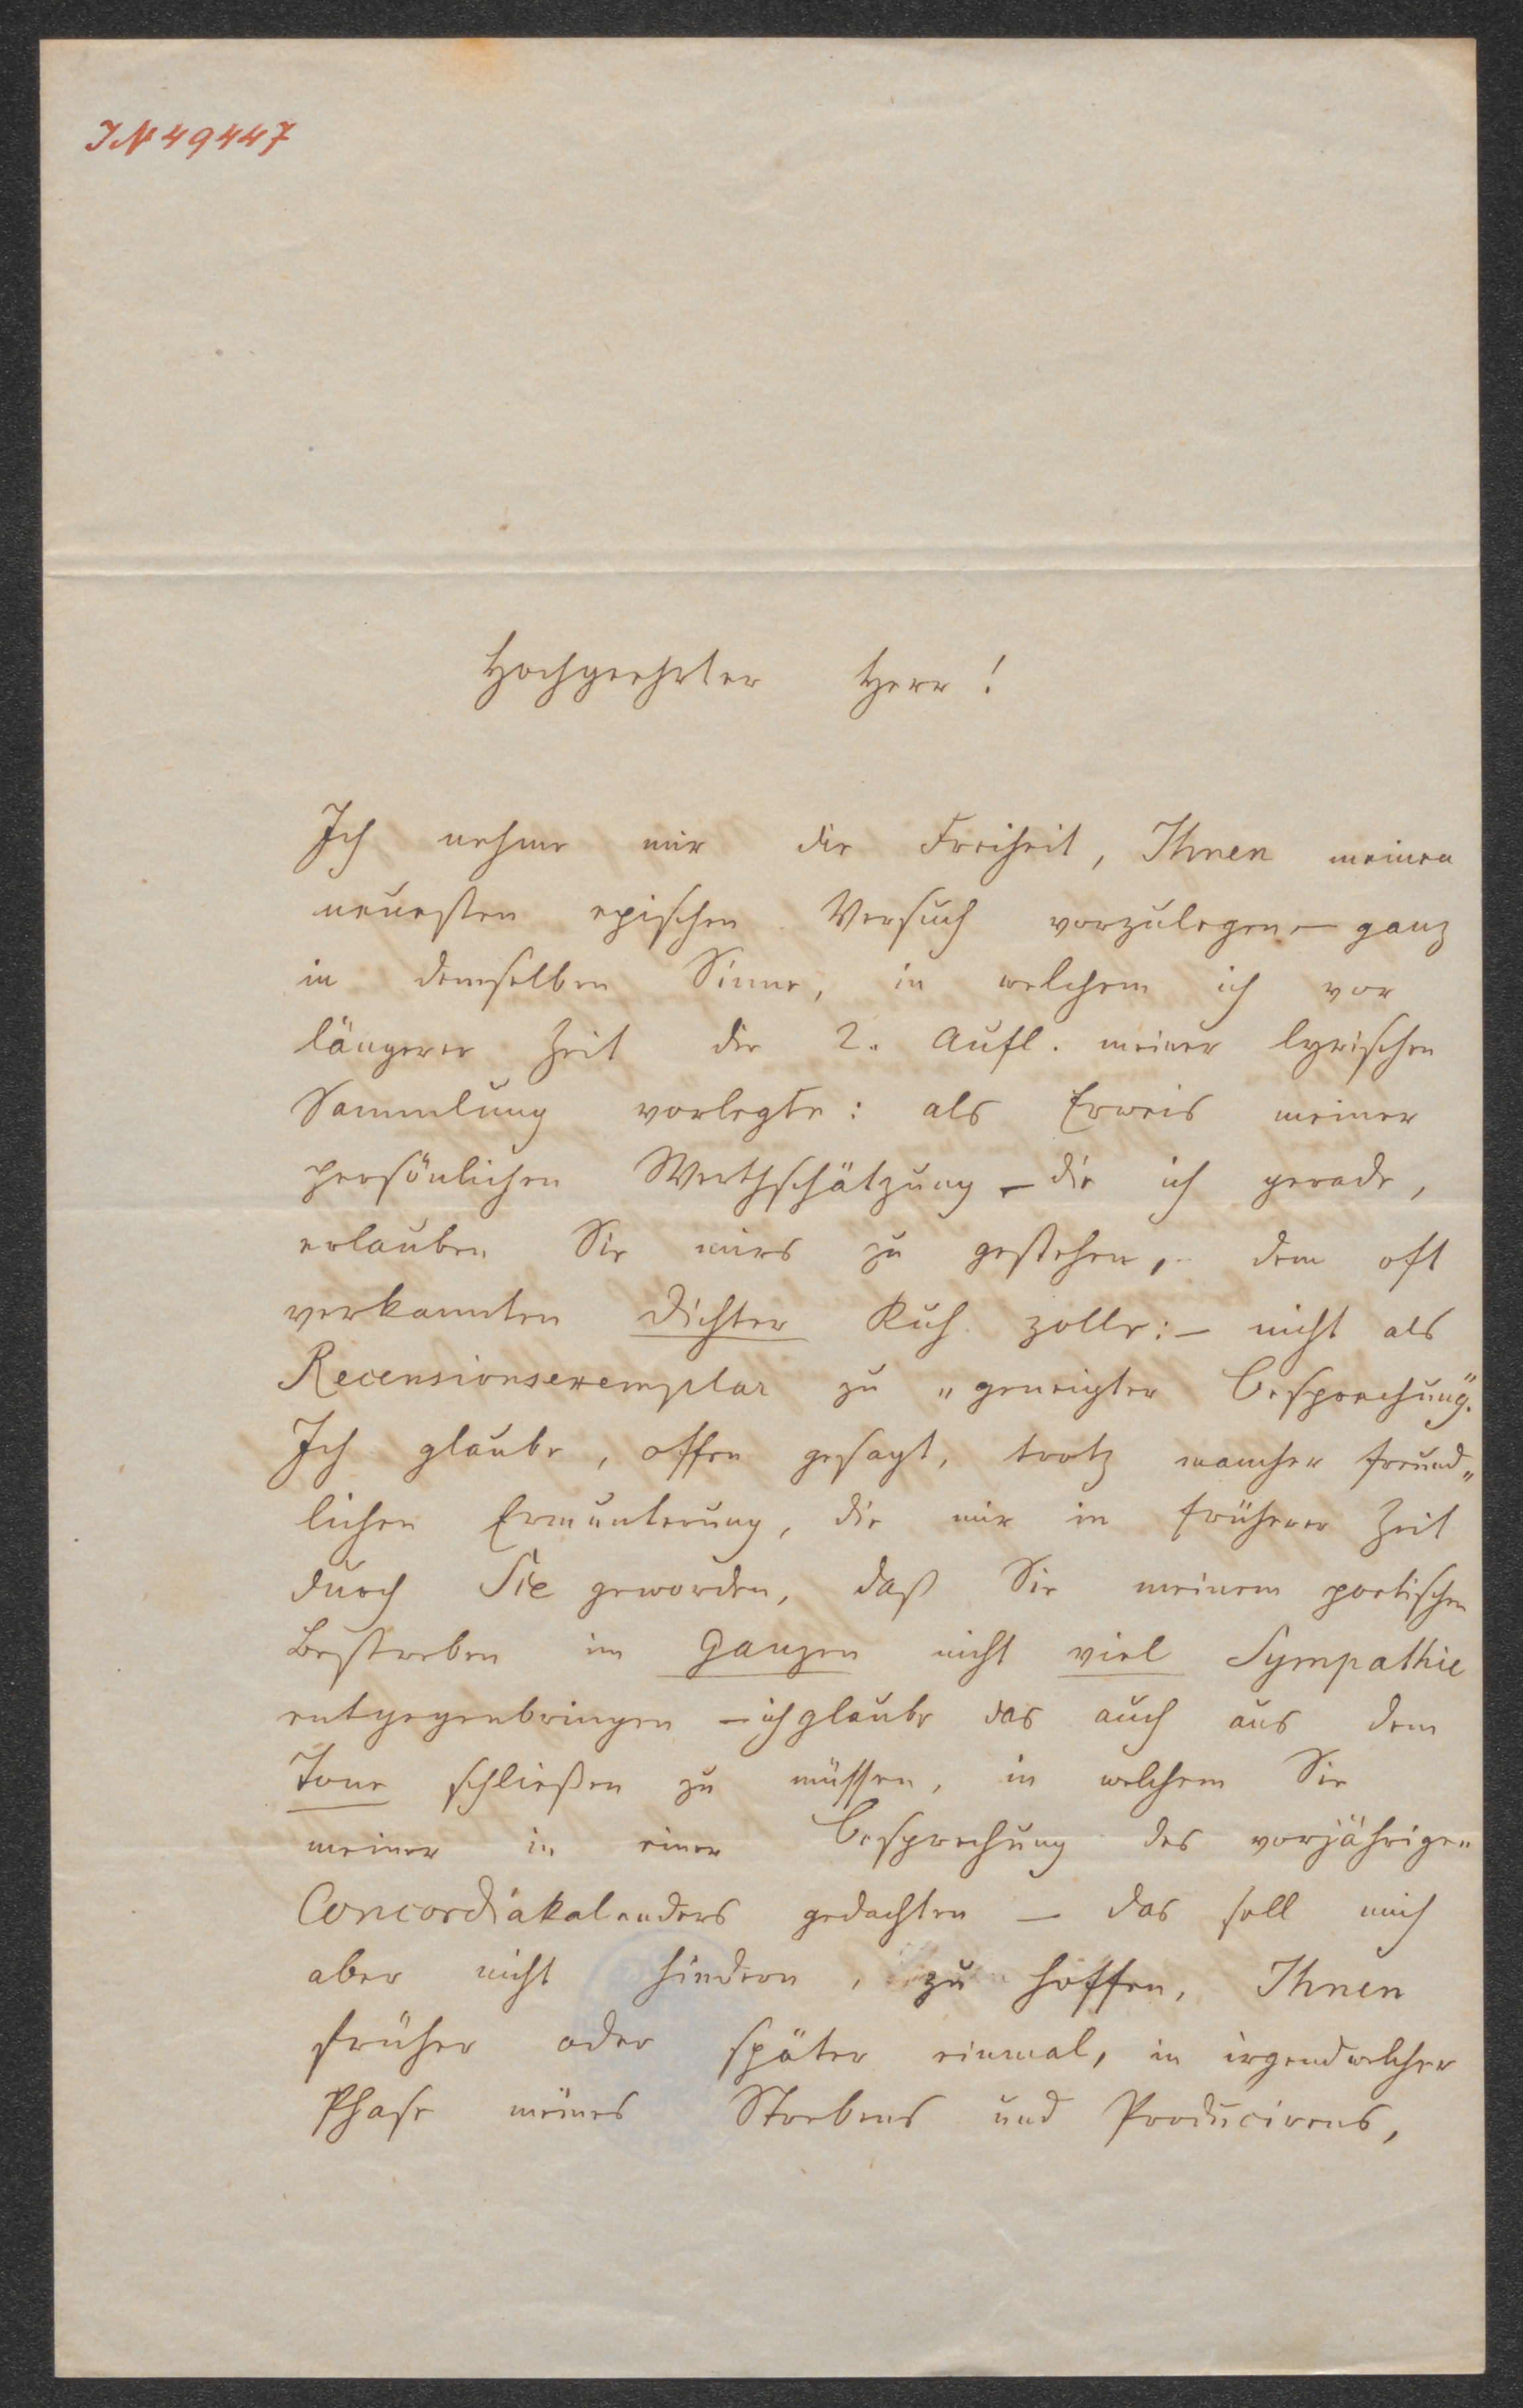 IN 49447
Hochgeehrter Herr!
Ich nehme mir die Freiheit, Ihnen meinen
neuesten epischen Versuch vorzulegen – ganz
in demselben Sinne, in welchem ich vor
längerer Zeit die 2. Aufl. meiner lyrischen
Sammlung vorlegte: als Erweis meiner
persönlichen Werthschätzung – die ich gerade,
erlauben Sie mirs zu gestehen, dem oft
verkannten Dichter Kuh zolle: – nicht als
Recensionsexemplar zu „geneigter Besprechung“.
Ich glaube, offen gesagt, trotz mancher freund„
lichen Ermunterung, die mir in früherer Zeit
durch Sie geworden, daß Sie meinem poetischen
Bestreben im Ganzen nicht viel Sympathie
entgegenbringen – ich glaube das auch aus dem
Tone schließen zu müssen, in welchem Sie
meiner in einer Besprechung des vorjährigen
Concordiakalenders gedachten – das soll mich
aber nicht hindern, zu hoffen, Ihnen
früher oder später einmal, in irgendwelcher
Phase meines Strebens und Producirens,